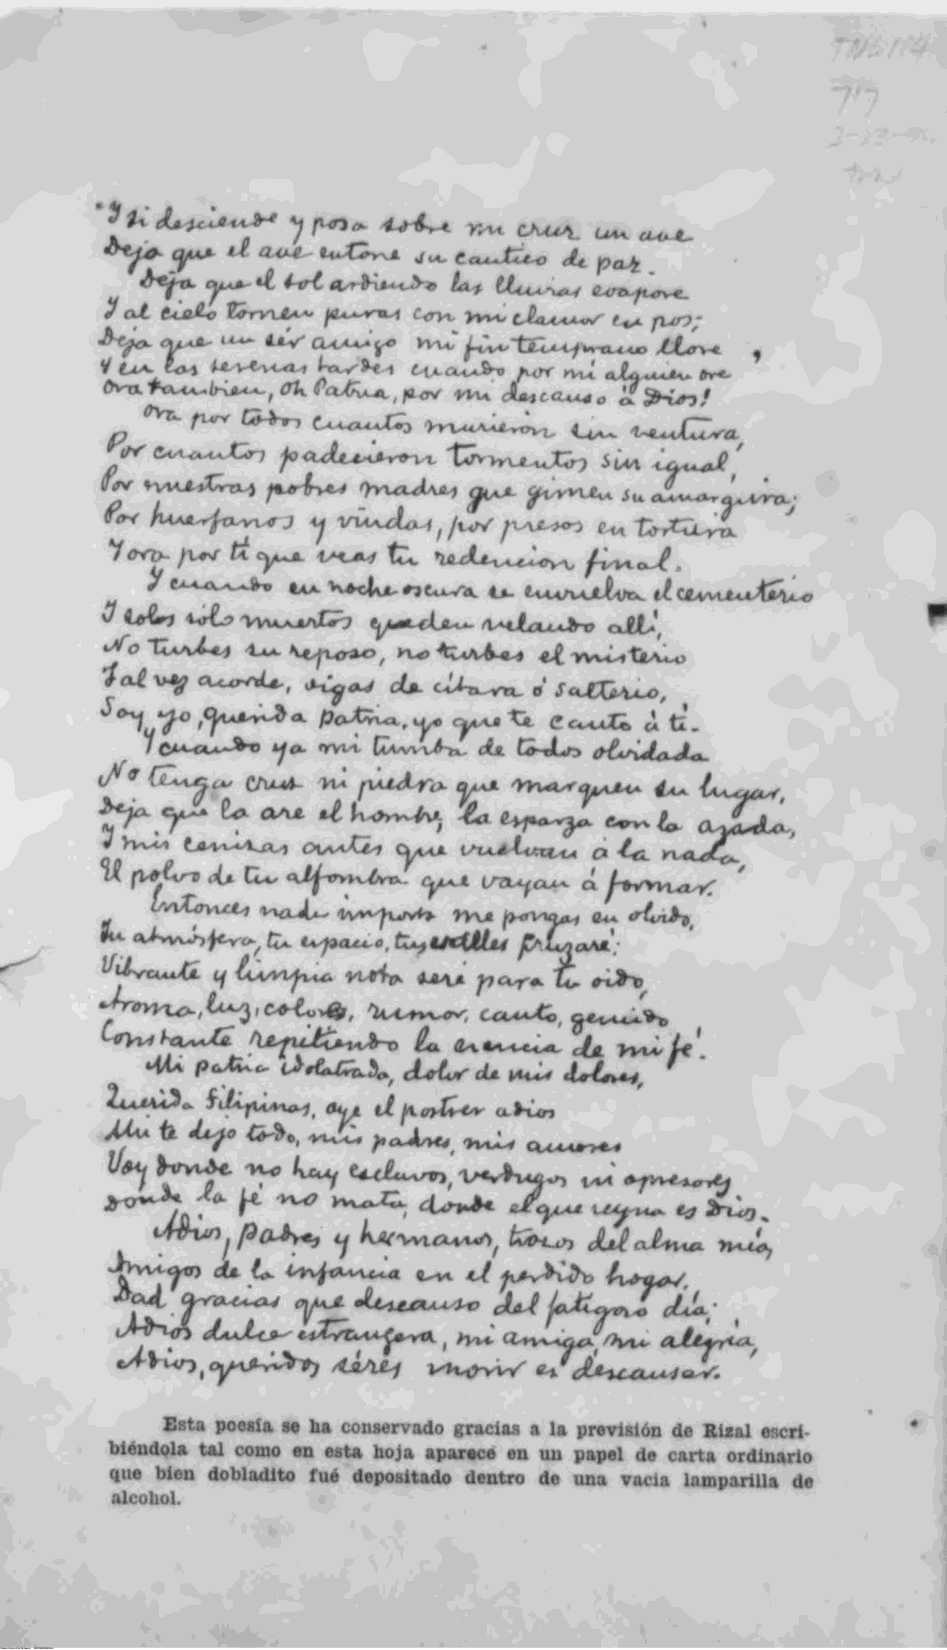 TNS114
717
Y si desciende y posa sobre mi cruz un ave
Deja que el ave entone su cantico de paz.
Deja que el sol ardiendo las lluvias evapore
Y al cielo tornen puras con mi clamor en pos;
Deja que un sér amigo mi fin temprano llore
Y en las serenas tardes cuando por mi alguien ore
Ora tambien, Oh Patria, por mi descanso á Dios!
Ora por todos cuantos murieron sin ventura,
Por cuantos padecieron tormentos sin igual,
Por nuestras pobres madres que gimen su amargura;
Por huerfanos y viudas, por presos en tortura
Y ora por ti que veas tu redencion final.
Y cuando en noche oscura se envuelva el cementerio
Y solos sólo muertos queden velando allí,
No turbes su reposo, no turbes el misterio
Tal vez acorde, oigas de cítara ó salterio,
Soy yo, querida Patria, yo que te canto á ti.
Y cuando ya mi tumba de todos olvidada
No tenga cruz ni piedra que marquen su lugar,
Deja que la are el hombre, la esparza con la azada,
Y mis cenizas antes que vuelvan á la nada,
El polvo de tu alfombra que vayan á formar.
Entonces nada importa me pongas en olvido,
Tu atmósfera, tu espacio, tus valles cruzaré:
Vibrante y limpia nota seré para tu oido,
Aroma, luz, colores, rumor, canto, gemido
Constante repitiendo la esencia de mi fé.
Mi patria idolatrada, dolor de mis dolores,
Querida Filipinas, oye el postrer adios
Ahi te dejo todo, mis padres, mis amores
Voy donde no hay esclavos, verdugos ni opresores
Donde la fé no mata, donde el que reyna es Dios.
Adios, padres y hermanos, trozos del alma mia,
Amigos de la infancia en el perdido hogar,
Dad gracias que descanso del fatigoso día;
Adios dulce estrangera, mi amiga, mi alegria,
Adios, queridos séres morir es descansar.
Esta poesía se ha conservado gracias a la previsión de Rizal escri-
biéndola tal como en esta hoja aparece en un papel de carta ordinario
que bien dobladito fué depositado dentro de una vacia lamparilla de
alcohol.